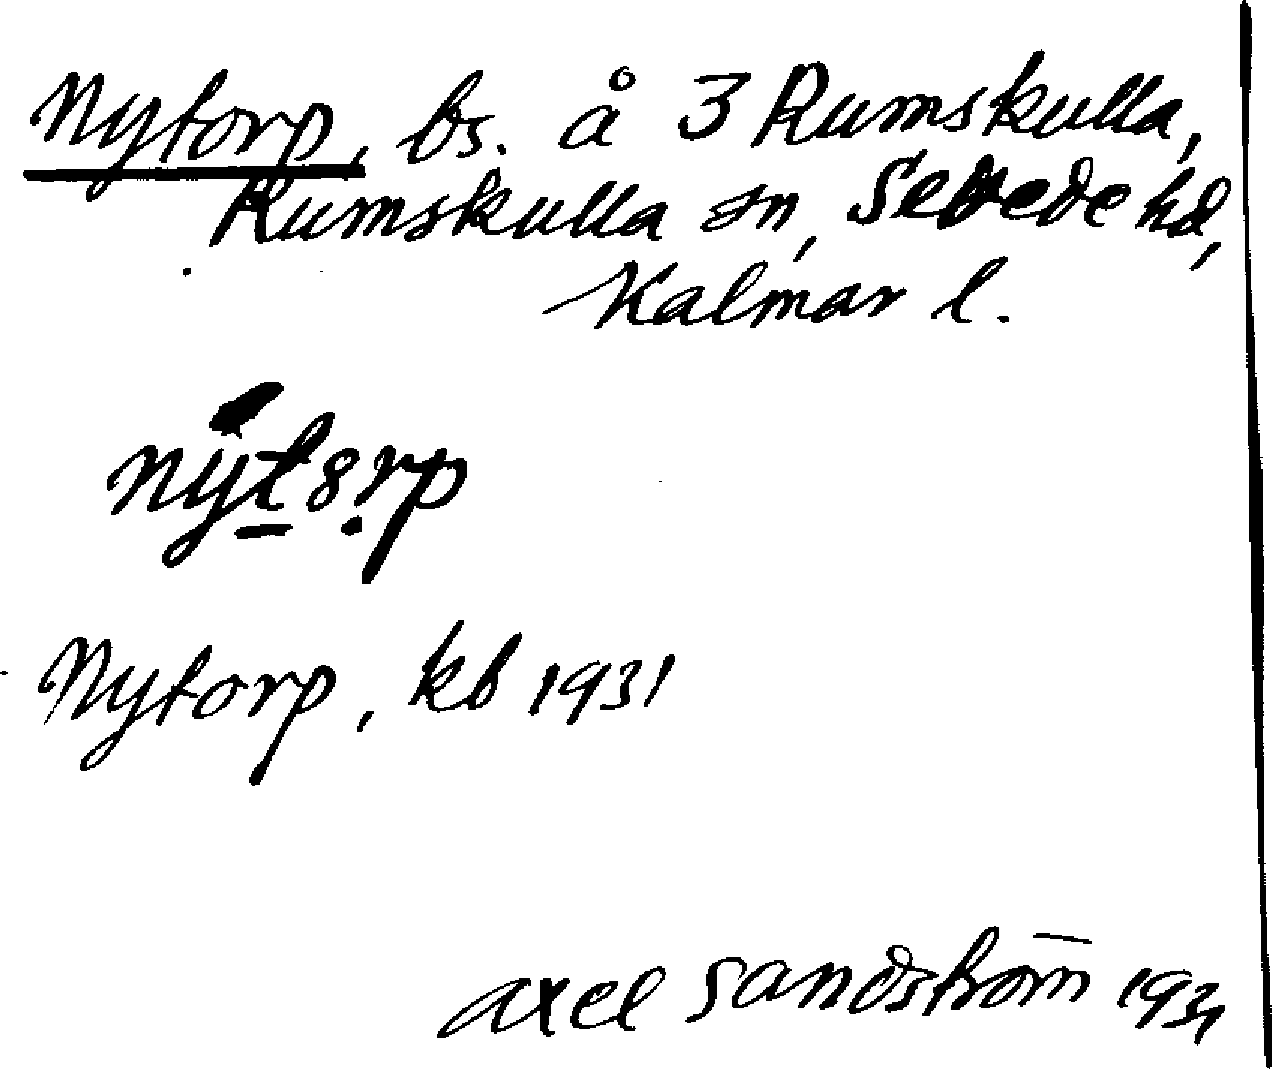 Nytorp, bs. å 3 Rumskulla,
Rumskulla sn, Sevede hd,
Kalmar l.
nyt8rp
Nytorp, kb 1931
Axel Sandström 1931